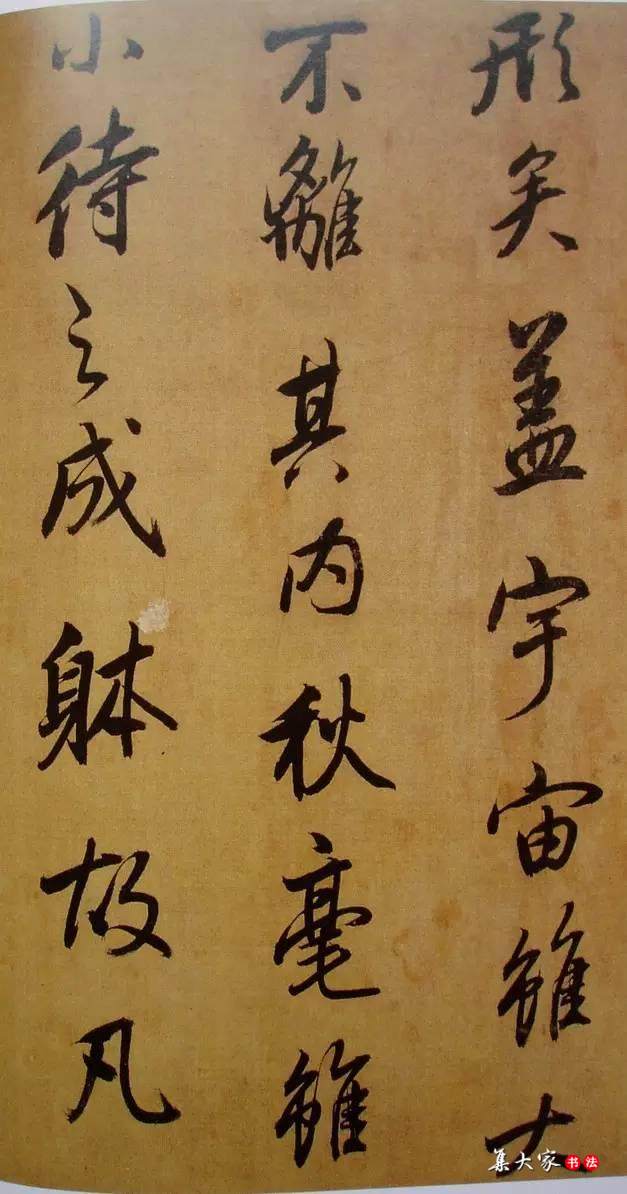 形矣盖宇宙雖大
不離其内秋毫雖
小待之成躰故凡
集大家书法